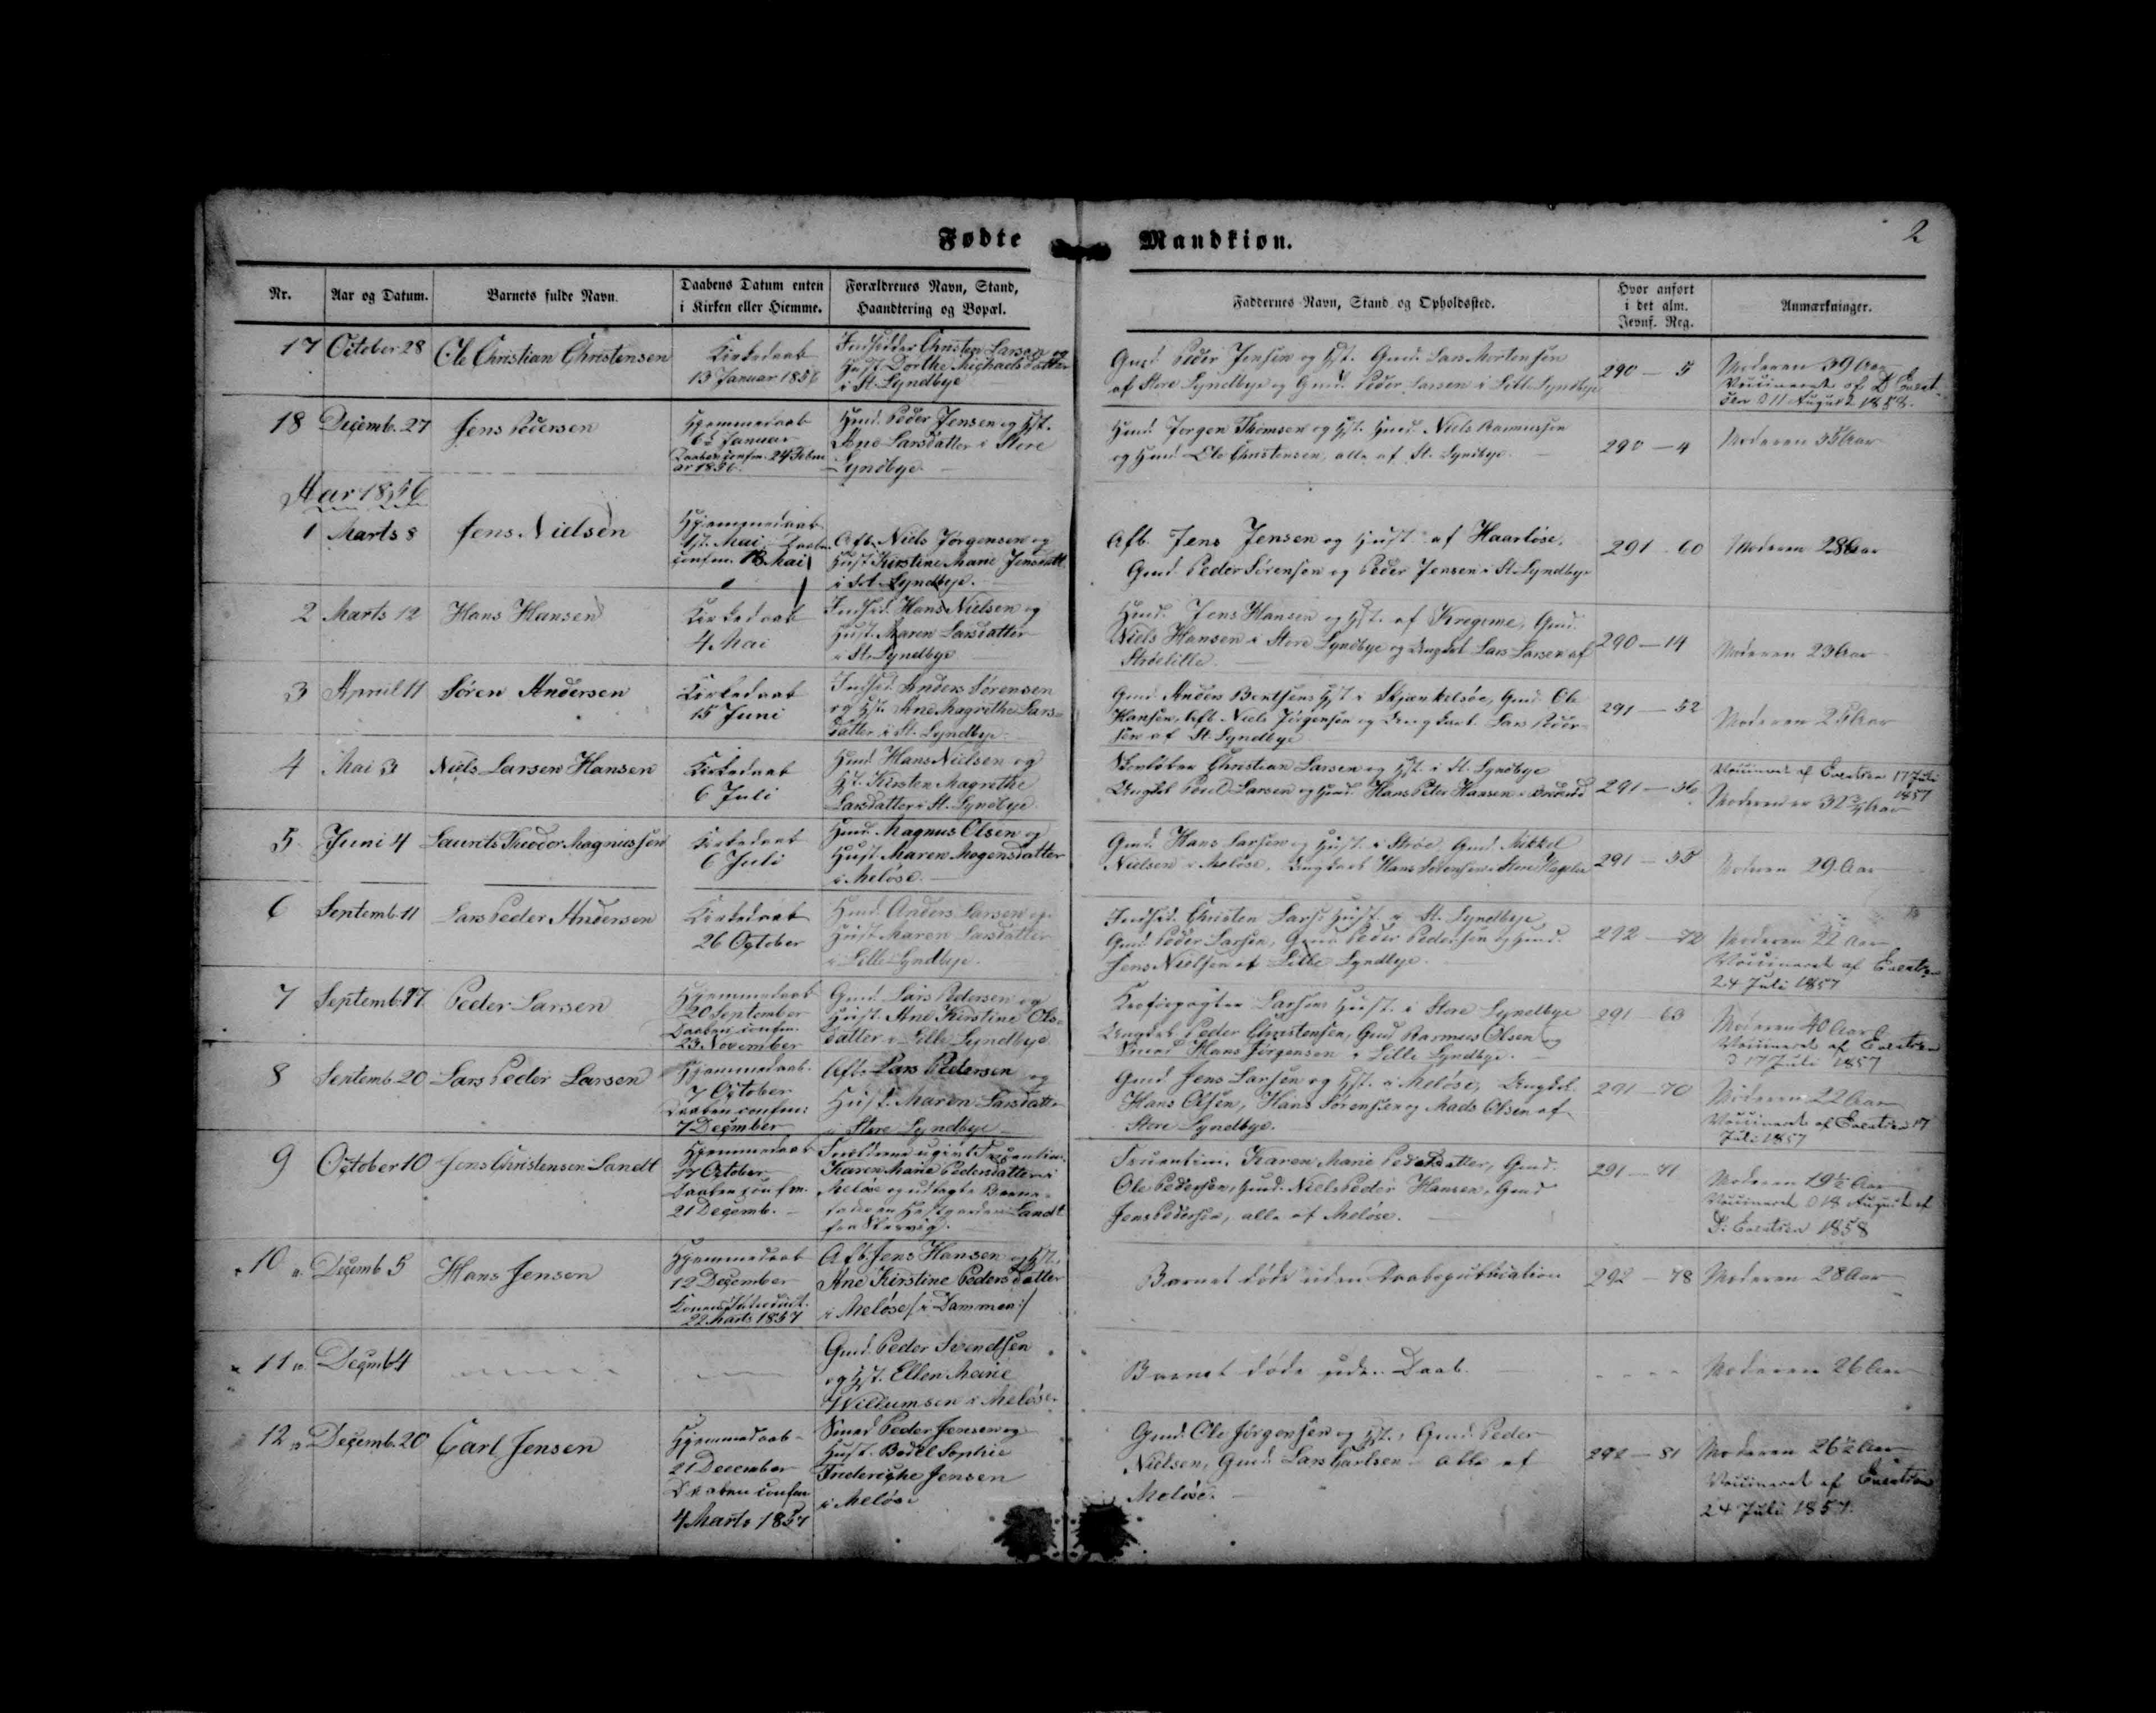 Fødte
Mandkiøn.
2
Nr.
Aar og Datum.
Barnets fulde Navn.
Daabens Datum enten
i Kirken eller Hiemme.
Forældrenes Navn, Stand,
Haandtering og Bopæl.
Faddernes Navn, Stand og Opholdssted.
Hvor anført
i det alm.
Jevnf. Reg.
Anmærkninger.
17 October 28 Ole Christian Christensen
Kirkedaab
13 Januar 1856
Indsidder Christen Larsen og
Hust. Dorthe Michaelsdatter
i St. Lyndbye
Gmd. Peder Jensen og Hst. Gmd. Lars Mortensen
af Store Lyndbye og Gmd. Peder Larsen i Lille Lyndbye
290 — 5
Moderen 39 Aar
Den 11 August 1858.
18 Decemb. 27 Jens Pedersen
Hjemmedaab
Januar
Daaben confm. 24 Febru
ar 1856.
Hmd. Peder Jensen og Hst.
Ane Larsdatter i Store
Lyndbye.
Hmd. Jørgen Thomsen og Hst. Hmd. Niels Rasmussen
og Hmd Ole Christensen, alle af St. Lyndbye.
290 — 4
Moderen 35 Aar
Aar 1856
1 Marts 8 Jens Nielsen
Hjemmedaab
1st. Mai Daaben
confm. 18 Mai
Aftb. Niels Jørgensen og
Hust Kirstine Marie Jensdatt
i Sto. Lyndbye.
Aftb. Jens Jensen og Hust. af Haarløse.
Gmd. Peder Sørensen og Peder Jensen i St. Lyndbye
291 60
Moderen 28 Aar
2 Marts 12 Hans Hansen
Kirkedaab
4 Mai
Indsid. Hans Nielsen og
Hust. Maren Larsdatter
i St. Lyndbye
Hmd. Jens Hansen og Hst. af Kregome, Gmd.
Niels Hansen i Store Lyndbye og Ungkarl Lars Larsen af
Strølille.
290 — 14
Moderen 23 Aar
3 April 11 Søren Andersen
Kirkedaab
15 Juni
Indsid. Anders Sørensen
og Hst. Ane Magrethe Lars-
datter i St. Lyndbye
Gmd Anders Bentsens Hst i Skjænkelsøe, Gmd. Ole
Hansen, Aftb. Niels Jørgensen og Ungkarl Lars Peder-
sen af St. Lyndbye
291 — 52
Moderen 25 Aar
4 Mai 3 Niels Larsen Hansen
Kirkedaab
6 Juli
Hmd. Hans Nielsen og
Hst. Kirsten Magrethe
Larsdatter i St. Lyndbye.
Christian Larsen og Hst. i St. Lyndbye
Ungkl Poul Larsen og Hmd. Hans Peter Hansen i
291 — 56
17 Juli
1857
Moderen er 32 Aar
5 Juni 4 Laurits Theodor Magnussen
Kirkedaab
6 Juli
Hmd. Magnus Olsen og
Hust. Maren Mogensdatter
i Meløse.
Gmd. Hans Larsen og Hust. i Strøe, Gmd. Mikkel
Nielsen i Meløse, Ungkarl Hans Sørensen i Store
291 — 55
Moderen 29 Aar
6 Septemb. 11 Lars Peder Andersen
Kirkedaab
26 October
Hmd. Anders Larsen og
Hust Maren Larsdatter
i Lille Lyndbye.
Indsid. Christen Lars: Hust. i St. Lyndbye,
Gmd. Peder Larsen, Gmd Peder Pedersen og Hmd.
Jens Nielsen af Lille Lyndbye.
292 — 72
Moderen 22 Aar
24 Juli 1857
7 Septemb. 17 Peder Larsen
Hjemmedaab
20 September
Daaben confm.
23 November
Gmd. Lars Pedersen og
Hust. Ane Kirstine Ols-
datter i Lille Lyndbye
Larsens Hust. i Store Lyndbye
Ungkarl Peder Christensen, Gmd Rasmus Olsen og
Smed Hans Jørgensen i Lille Lyndbye.
291 — 63
Moderen 40 Aar
D 17 Juli 1857
8 Septemb. 20 Lars Peder Larsen
Hjemmedaab.
7 October
Daaben confm:
7 December
Aftb. Lars Pedersen og
Hust. Maren Larsdatter
i Store Lyndbye
Gmd Jens Larsen og Hst. i Meløse, Ungkl.
Hans Olsen, Hans Sørensen og Mads Olsen af
Store Lyndbye.
291 — 70
Moderen 22 Aar
17
Juli 1857
9 October 10 Jens Christensen Sandt
Hjemmedaab
27 October
Daaben confm.
21 Decemb.
Forældrene ugivt Fruentim.
Karen Marie Pedersdatter i
Meløse og udlagte Barne-
fader Sandt
Fruentim. Karen Marie Pedersdatter, Gmd.
Ole Pedersen, Hmd. Niels Peder Hansen, Gmd
Jens Pedersen, alle af Meløse.
291 — 71
Moderen 19½ Aar
18 August af
1858
10 Decemb 5 Hans Jensen
Hjemmedaab
12 December
Konens Introduct.
22 Marts 1857
Aftb. Jens Hansen og Hst.
Ane Kirstine Pedersdatter
i Meløse /: i Dammen :/
Barnet døde uden Daabspublication
292 — 78
Moderen 28 Aar
11 Decmb 4
Gmd. Peder Svendsen
og Hst. Ellen Marie
Willumsen i Meløse.
Barnet døde uden Daab.
Moderen 26 Aar
12 Decemb. 20 Carl Jensen
Hjemmedaab
21 December
Daaben confm
4 Marts 1857
Smed Peder Jensen og
Hust. Bodil Sophie
Frederiche Jensen
i Meløse
Gmd. Ole Jørgensen og Hst., Gmd. Peder
Nielsen, Gmd. Lars Carlsen alle af
Meløse.
292 — 81
Moderen 26½ Aar
24 Juli 1857.